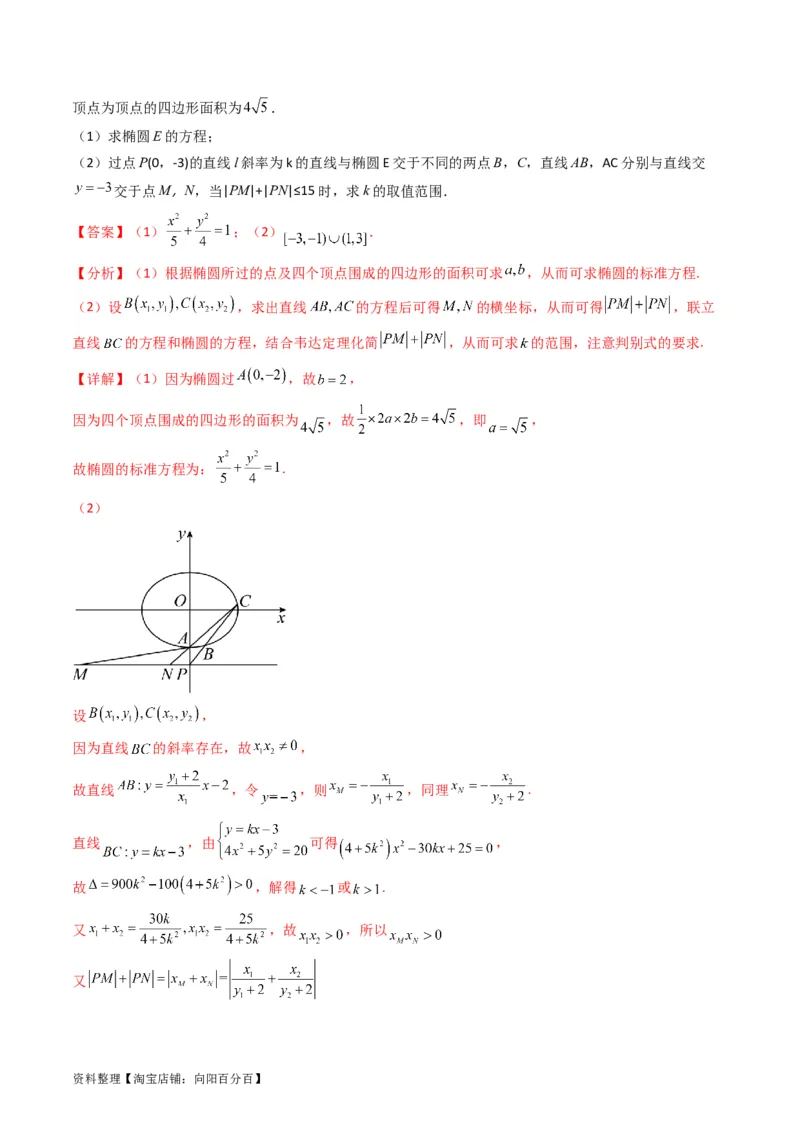 顶点为顶点的四边形面积为4√5．
（1）求椭圆E的方程；
（2）过点P(0，-3)的直线l斜率为k的直线与椭圆E交于不同的两点B，C，直线AB，AC分别与直线交
y＝−3交于点M，N，当|PM|+|PN|≤15时，求k的取值范围．
【答案】（1）x²/5 + y²/4 = 1；（2）[−3,−1)∪(1,3]．
【分析】（1）根据椭圆所过的点及四个顶点围成的四边形的面积可求a,b，从而可求椭圆的标准方程.
（2）设B(x₁,y₁),C(x₂,y₂)，求出直线AB,AC的方程后可得M,N的横坐标，从而可得|PM|+|PN|，联立
直线BC的方程和椭圆的方程，结合韦达定理化简|PM|+|PN|，从而可求k的范围，注意判别式的要求.
【详解】（1）因为椭圆过A(0,−2)，故b＝2，
因为四个顶点围成的四边形的面积为4√5，故1/2×2a×2b＝4√5，即a＝√5，
故椭圆的标准方程为：x²/5 + y²/4 = 1.
（2）
y
O
C
x
A
B
M
N P
设B(x₁,y₁),C(x₂,y₂)，
因为直线BC的斜率存在，故x₁x₂≠0，
故直线AB:y＝(y₁+2)/x₁ x−2，令y=−3，则x_M＝−x₁/(y₁+2)，同理x_N＝−x₂/(y₂+2).
直线BC:y＝kx−3，由{y＝kx−3 4x²+5y²＝20可得(4+5k²)x²−30kx+25＝0，
故Δ＝900k²−100(4+5k²)>0，解得k<−1或k>1.
又x₁+x₂＝30k/(4+5k²),x₁x₂＝25/(4+5k²)，故x₁x₂>0，所以x_M x_N>0
又|PM|+|PN|＝|x_M+x_N|=|x₁/(y₁+2)+x₂/(y₂+2)|
资料整理【淘宝店铺：向阳百分百】